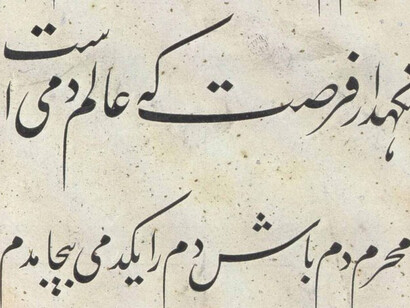 نگهدار فرصت که عالم دمی است
محرم دم باش دم را یکدمی بیجا مدم